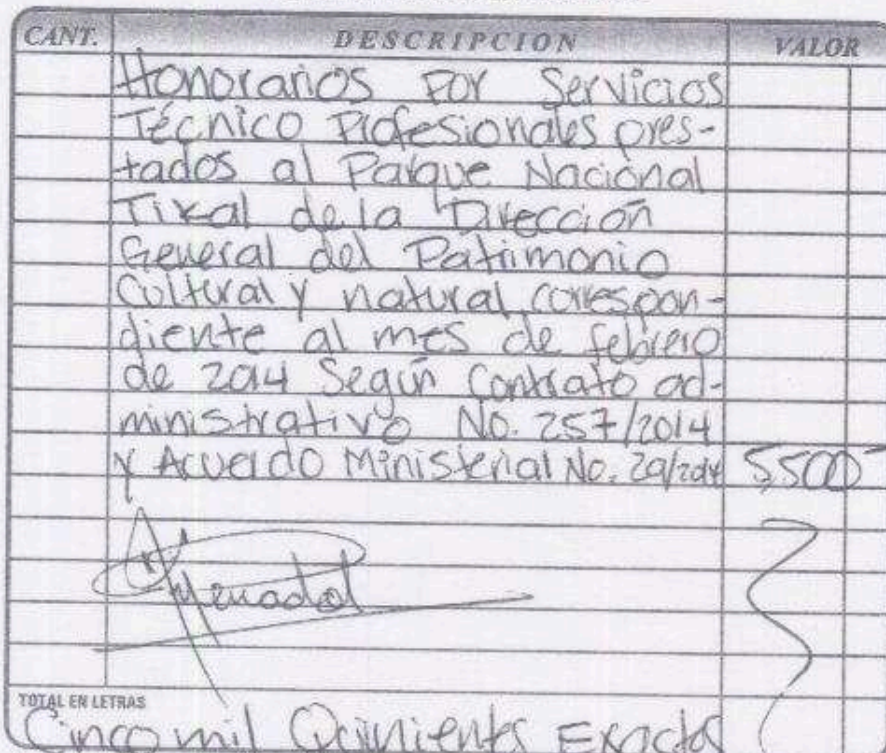 CANT. DESCRIPCION VALOR
Honorarios Por Servicios
Técnico Profesionales pres-
tados al Parque Nacional
Tikal de la Dirección
General del Patrimonio
Cultural y natural correspon-
diente al mes de febrero
de 2014 Según Contrato ad-
ministrativo No. 257/2014
y Acuerdo Ministerial No. 29/2014 5,500
TOTAL EN LETRAS
Cinco mil Quinientos Exactos